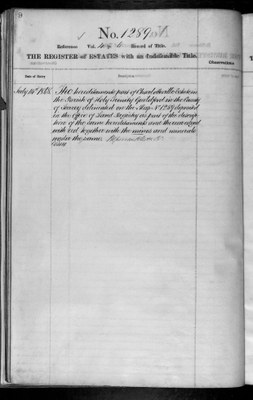 No. 1289
Reference Vol. Record of Title.
THE REGISTER of ESTATES with an Indefeasible Title.
Date of Entry
Observations
July 1868. The hereditaments part of Charlotteville Estate in
the Parish of Holy Trinity Guildford in the County
of Surrey delineated in the Map No. 1289 deposited
in the Office of Land Registry as part of the descrip-
tion of the same hereditaments and thereon edged
with red together with the mines and minerals
under the same.